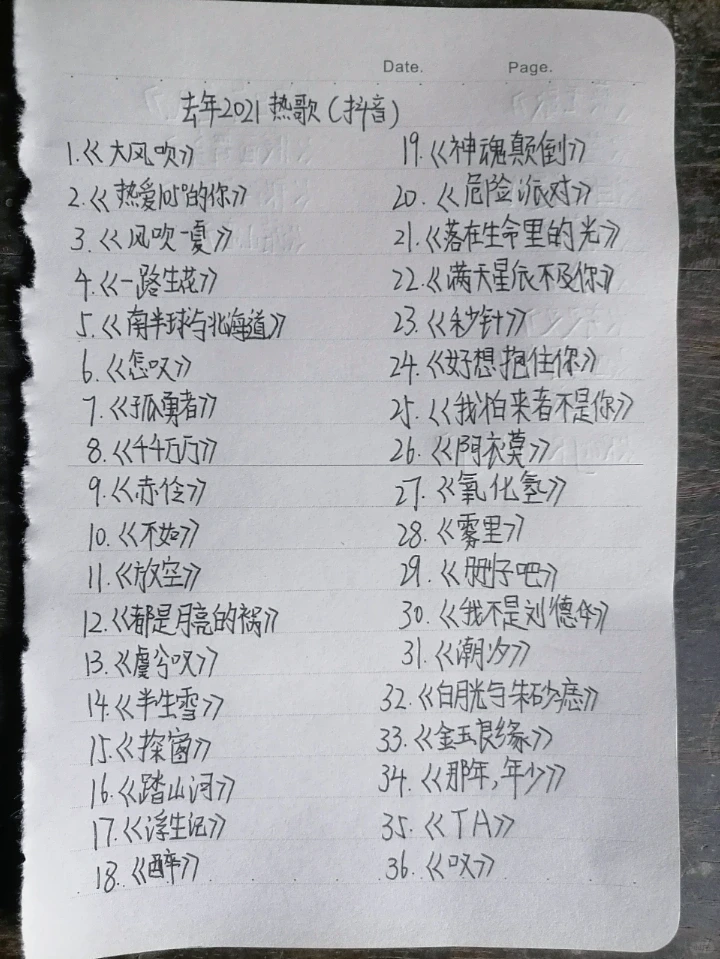 Date. Page.
去年2021热歌(抖音)
1.《大风吹》
2.《热爱105°的你》
3.《风吹一夏》
4.《一路生花》
5.《南半球与北海道》
6.《怎叹》
7.《孤勇者》
8.《千千万万》
9.《赤伶》
10.《不如》
11.《放空》
12.《都是月亮的祸》
13.《虞兮叹》
14.《半生雪》
15.《探窗》
16.《踏山河》
17.《浮生记》
18.《醉》
19.《神魂颠倒》
20.《危险派对》
21.《落在生命里的光》
22.《满天星辰不及你》
23.《秒针》
24.《好想抱住你》
25.《我怕来者不是你》
26.《阿衣莫》
27.《氧化氢》
28.《雾里》
29.《肥仔吧》
30.《我不是刘德华》
31.《潮汐》
32.《白月光与朱砂痣》
33.《金玉良缘》
34.《那年,年少》
35.《TA》
36.《叹》